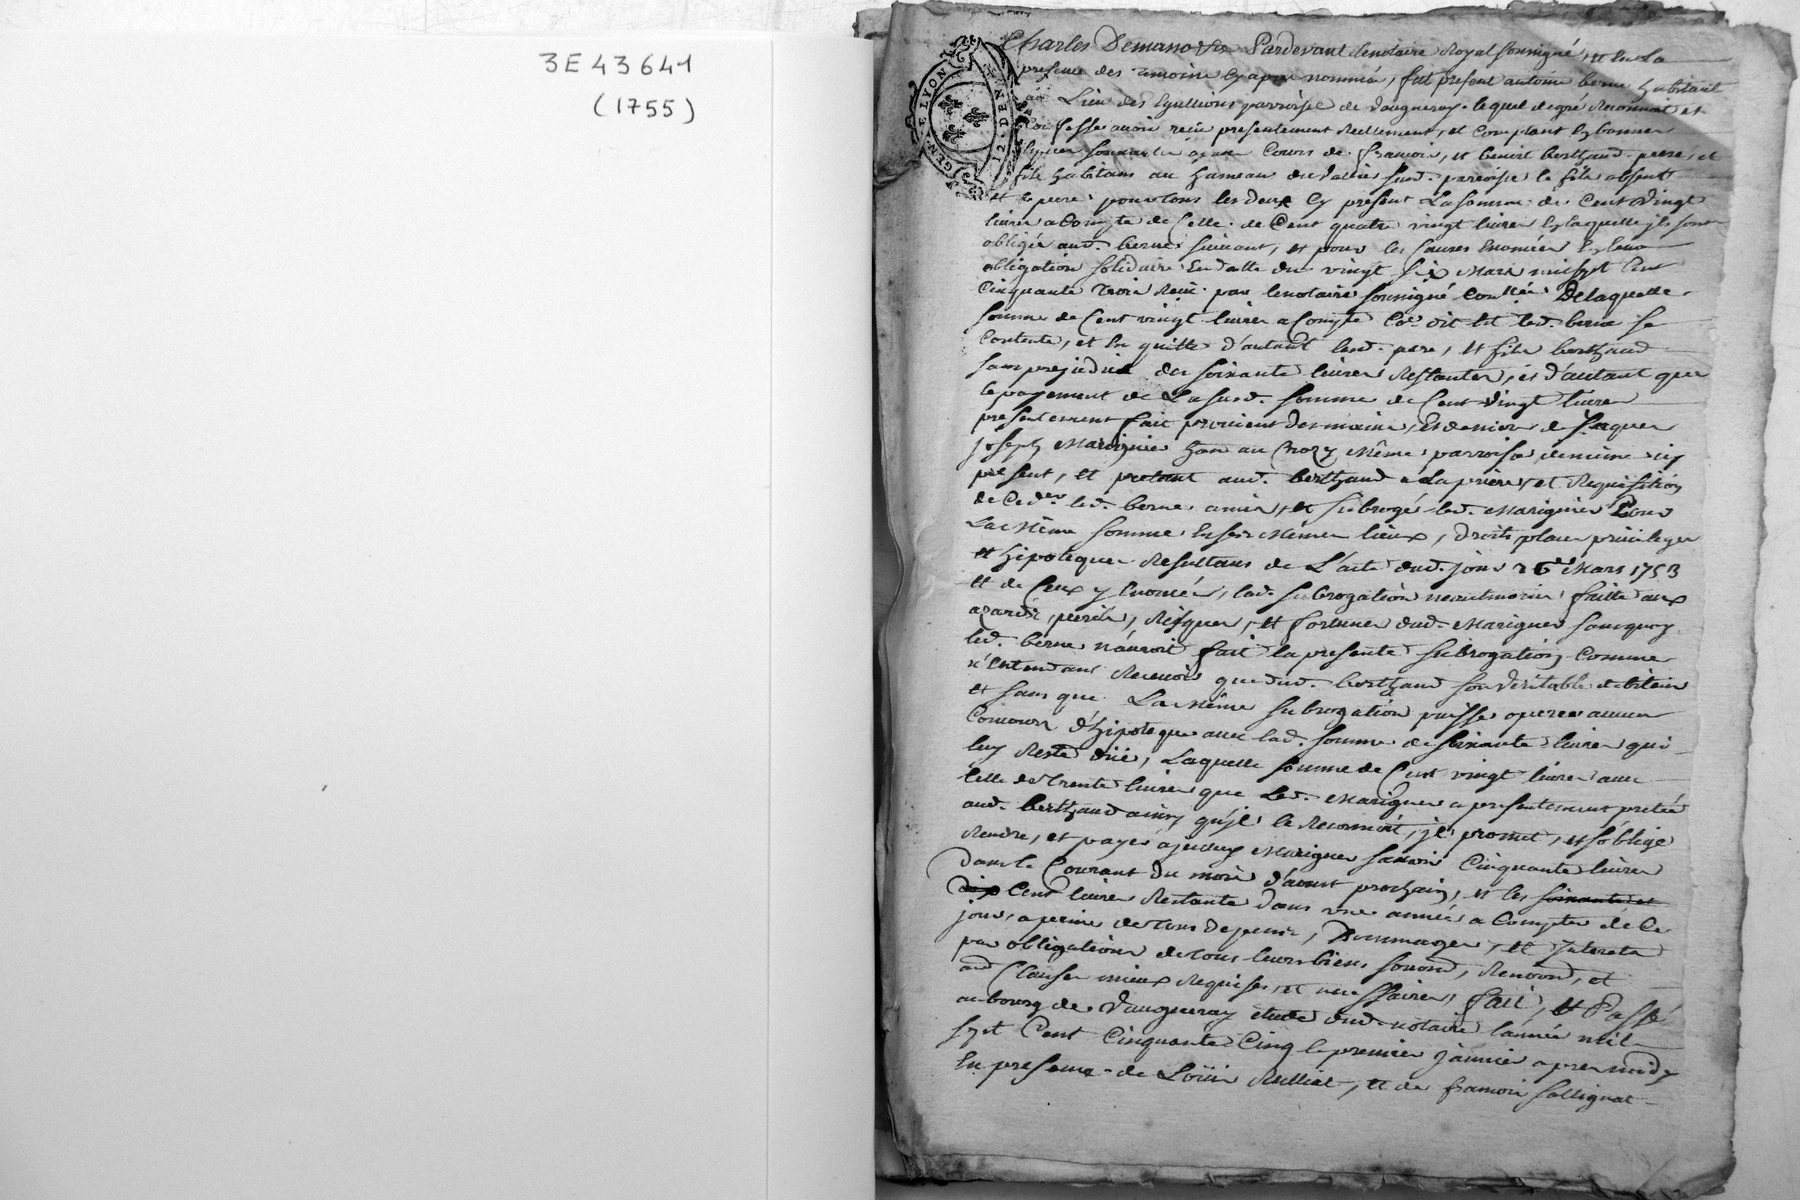 3E43641
(1755)
GEN. E LYON
12. DEN
Charles Pardevant le notaire Royal soussigné, et en la
presence des temoins cy apres nommés, fut present antoine berne habitant
au Lieu des Eguillions parroisse de vaugneray, lequel de gré Reconnoit et
Confesse avoir reçu presentement Reellement, et Comptant en bonnes
Especes sonnantes ayant Cours de francois, et benoit berthaud pere, et
fils habitans au hameau du susd. parroisse le fils absent
et le pere pour tous les deux cy present La somme de Cent vingt
livres a Compte de Celle de Cent quatre vingt livres En laquelle ils sont
obligés aud. berne suivant, et pour les Causes Enoncées En leur
obligation solidaire En datte du vingt six Mars mil sept Cent
Cinquante trois Reçu par le notaire soussigné De laquelle
somme de Cent vingt livres a Compte led. berne se
Contente, et En quitte d'autant lesd. pere, et fils berthaud
sans prejudice des soixante livres Restantes, et d'autant que
le payement de La susd. somme de Cent vingt livres
presentement fait provient des mains, et deniers de Jacques
Joseph Marignier han au Crozy Même parroisse cy
present, et pretant aud. berthaud a La priere, et Requisition
led. berne a mis, et subrogé led. Marignier Pour
La Même somme En ses Mêmes lieux, droits place privileges
et hipoteques Resultans de L'acte dud. jour 26e Mars 1753
et de Ceux y Enoncés, lad. subrogation neantmoins faitte aux
azards, perils, Risques, et fortunes dud. Marignier sans quoy
led. berne n'auroit fait la presente subrogation Comme
n'Entendant Recevoir que dud. berthaud son veritable debiteur
et sans que La Même subrogation puisse operer aucun
Concours d'hipoteque avec lad. somme de soixante livres qui
luy Reste düe, Laquelle somme de Cent vingt livres avec
Celle de trente livres que Led. Marignier a presentement pretée
aud. berthaud ainsy qu'il le Reconnoit, il promet, et s'oblige
Rendre, et payer a jceluy Marignier savoir Cinquante livres
dans le Courant du mois d'aoust prochain, et les soixante et
dix Cent livres Restante dans une année a Compter de Ce
jour, a peine de tous depens, Dommages, et Interets
par obligations de tous leurs biens, renon, et
Clauses mieux Requises, et necessaires, fait, et Passé
au bourg de Vaugneray étude dud. notaire l'année mil
sept Cent Cinquante Cinq le premier janvier apres midy
En presence de Loüis et de francois